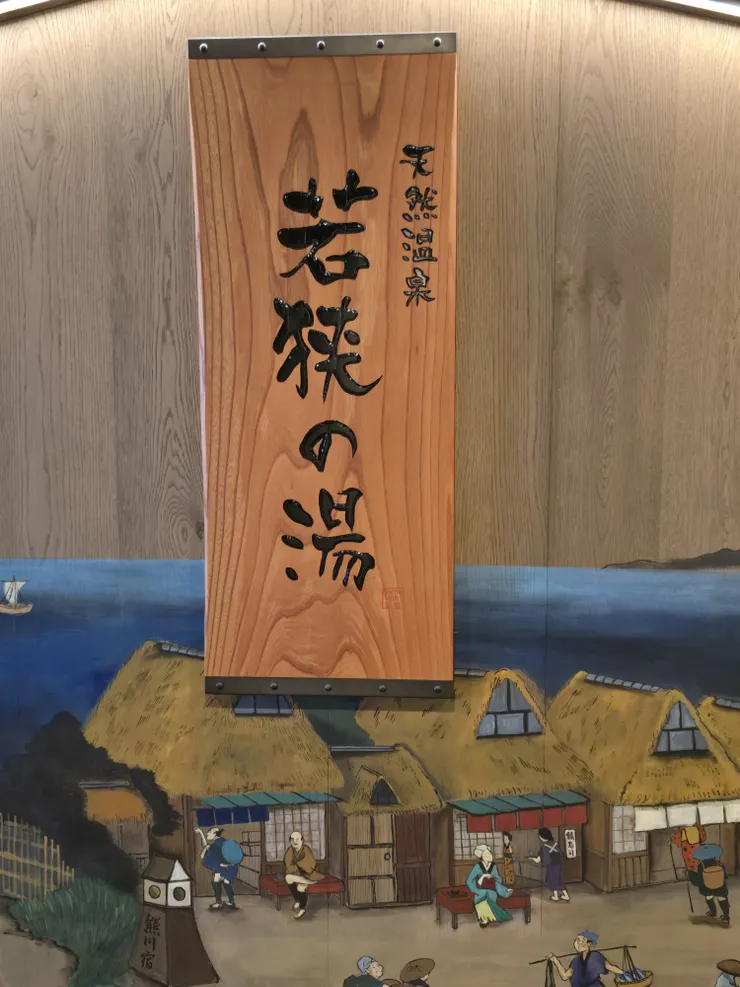 天然温泉
若狭の湯
熊川宿